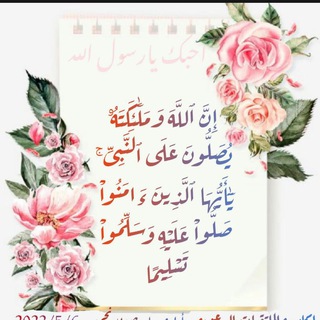 احبك يارسول الله
إِنَّ ٱللَّهَ وَمَلَٰٓئِكَتَهُۥ
يُصَلُّونَ عَلَى ٱلنَّبِىِّ ۚ
يَٰٓأَيُّهَا ٱلَّذِينَ ءَامَنُوا۟
صَلُّوا۟ عَلَيْهِ وَسَلِّمُوا۟
تَسْلِيمًا
2022/5/6